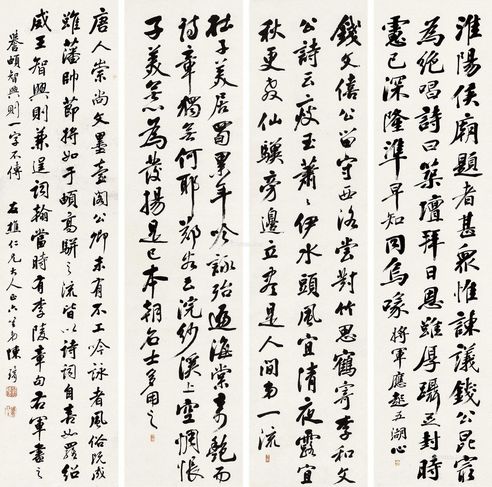 淮陽侯廟題者甚衆惟諫議錢公昆最
為絶唱詩曰築壇拜日恩雖厚躡足封時
慮已深隆準早知同烏喙將軍應起五湖心
錢文僖公留守西洛嘗對竹思鶴寄李和文
公詩云瘦玉蕭〻伊水頭風宜清夜露宜
秋更教仙驥旁邊立盡是人間第一流
杜子美居蜀累年吟詠殆遍海棠奇艷而
詩章獨無何耶鄭谷云浣紗溪上空惆悵
子美無為發揚是已本朝名士多用之
唐人崇尚文墨臺閣公卿未有不工吟詠者風俗既成
雖藩帥節將如于頔高駢之流皆以詩詞自喜如羅紹
威王智興則兼逞詞翰當時有李陵章句右軍書之
譽頔智興則一字不傳 石樵仁兄大人正 六笙弟陳璚